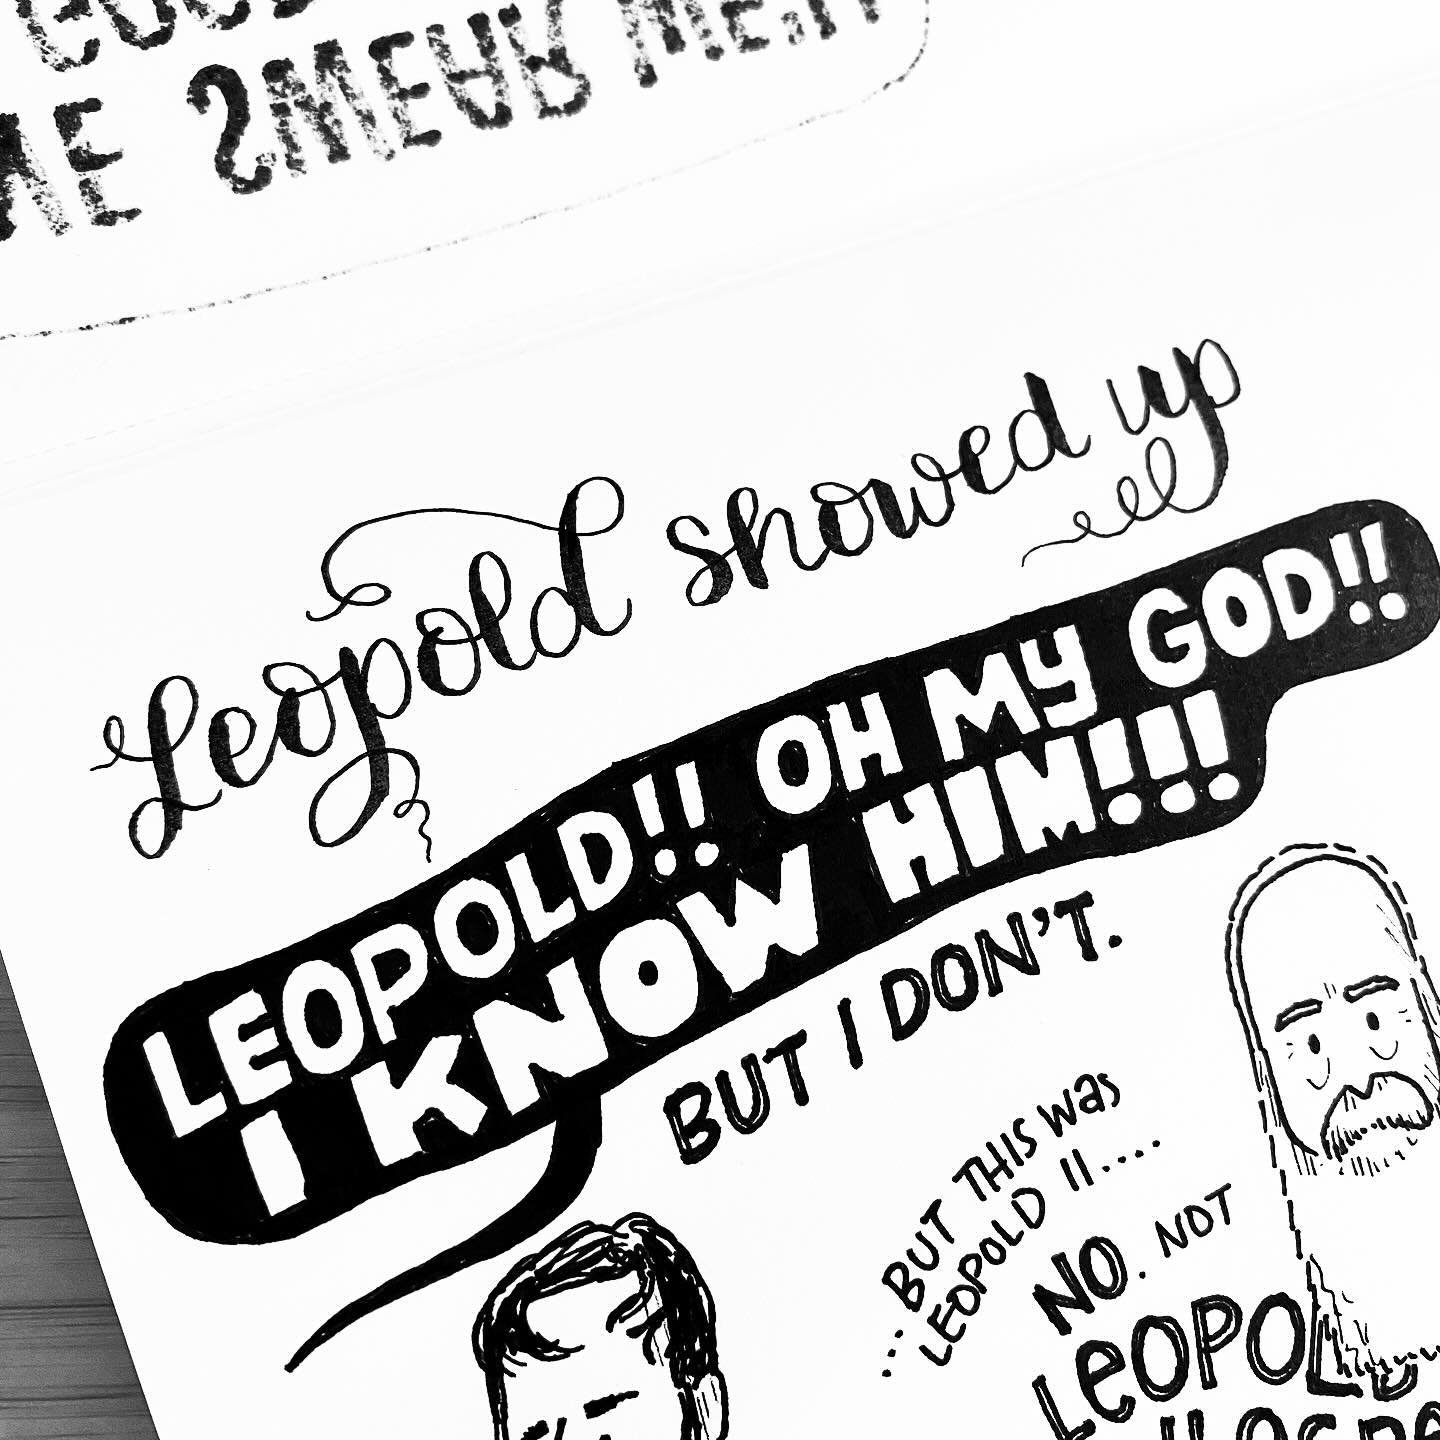 SMEAR
Leopold showed up
LEOPOLD!! OH MY GOD!!
I KNOW HIM!!!
BUT I DON'T.
...BUT THIS was
LEOPOLD II....
NO. NOT
LeOPOLD